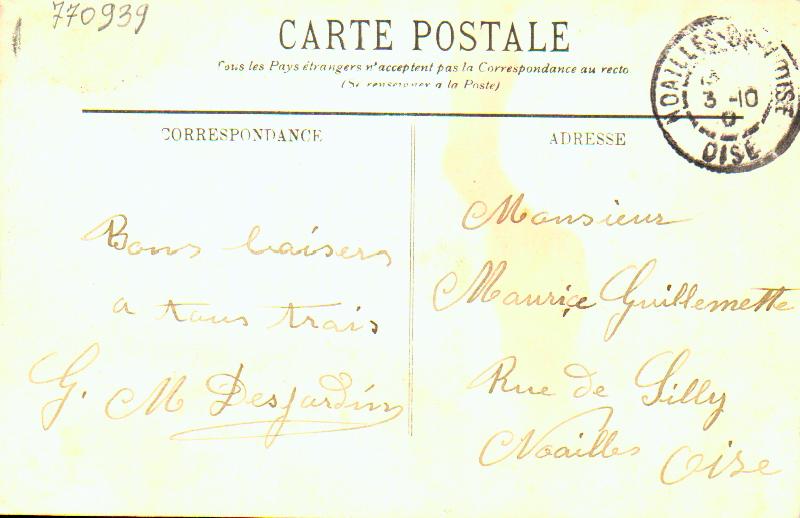 770939
CARTE POSTALE
Tous les Pays étrangers n'acceptent pas la Correspondance au recto
(Se renseigner a la Poste)
NOAILLES-DE-L'OISE
3 -10
OISE
CORRESPONDANCE
ADRESSE
Bons baisers
a tous trois
G. M Desjardin
Monsieur
Maurice Guillemette
Rue de Silly
Noailles Oise